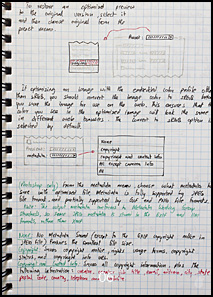 To restore an optimized preview
to the original version select it
and then choose original from the
preset menu.
Preset:
If optimizing an image with the embedded color profile other
than sRGB, you should convert the image color to sRGB before
you save the image for use on the web. This ensures that the
color you see in the optimized image will look the same
in different web browsers. The convert to sRGB option is
selected by default.
Preview:
Metadata:
None
Copyright
Copyright and contact info
All except camera info
All
(Photoshop only) From the metadata menu choose what metadata to
save with optimized file. Metadata is fully supported by JPEG
file format, and partially supported by GIF and PNG file formats.
None: No metadata saved (except for the EXIF copyright notice in
JPEG files) produces the smallest file size.
Copyright: Saves copyright notice, rights usage terms, copyright
status, and copyright info url.
Copyright and contact info: Saves all copyright information plus the
following information: creator, creator job title, email, address, city, state
postal code, country, telephone and